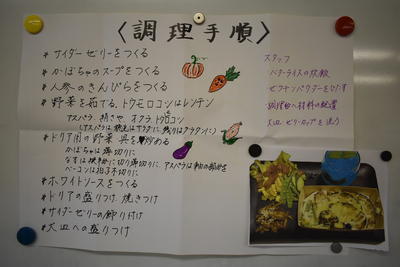 〈調理手順〉
* サイダーゼリーをつくる
* かぼちゃのスープをつくる
* 人参のきんぴらをつくる
* 野菜を茹でる、トウモロコシはレンチン
アスパラ、絹さや、オクラ、トウモロコシ
* ドリア用の野菜、具を炒める
かぼちゃは薄切りに
ベーコンは拍子木切りに
* ホワイトソースをつくる
* ドリアの盛りつけ、焼きつけ
* サイダーゼリーの飾り付け
* 大皿への盛りつけ
スタッフ
バターライスの炊飯
ゼラチンパウダーをひたす
調理台へ材料の配置
大皿、ゼリーカップを洗う